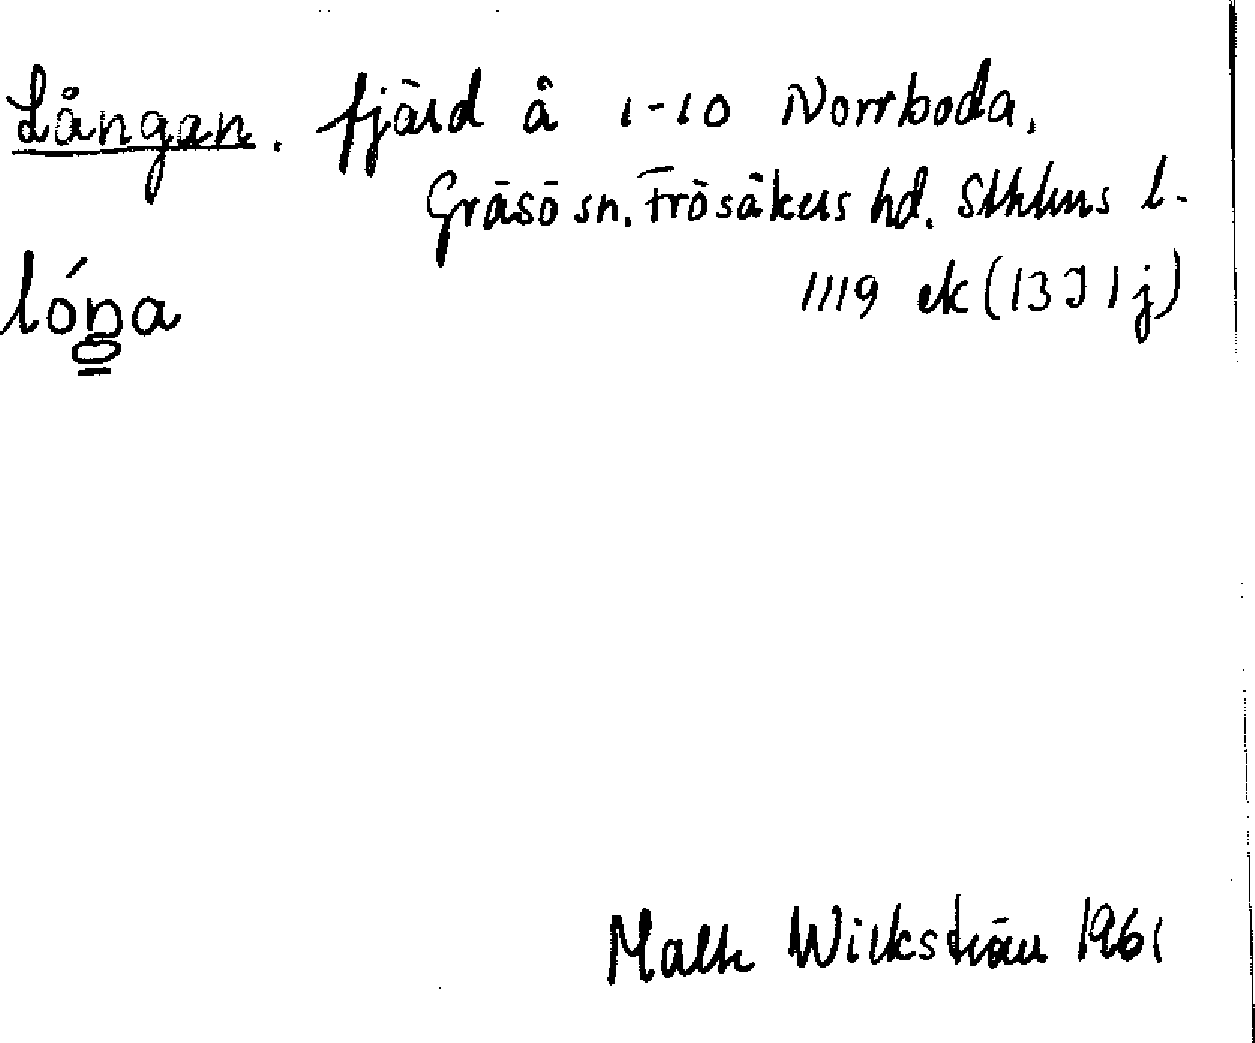 Långan. fjärd å 1-10 Norrboda,
Gräsö sn. Frösåkers hd. Sthlms l.
lóŋa
1119 ek (13 I 1 j)
Wikström 1961